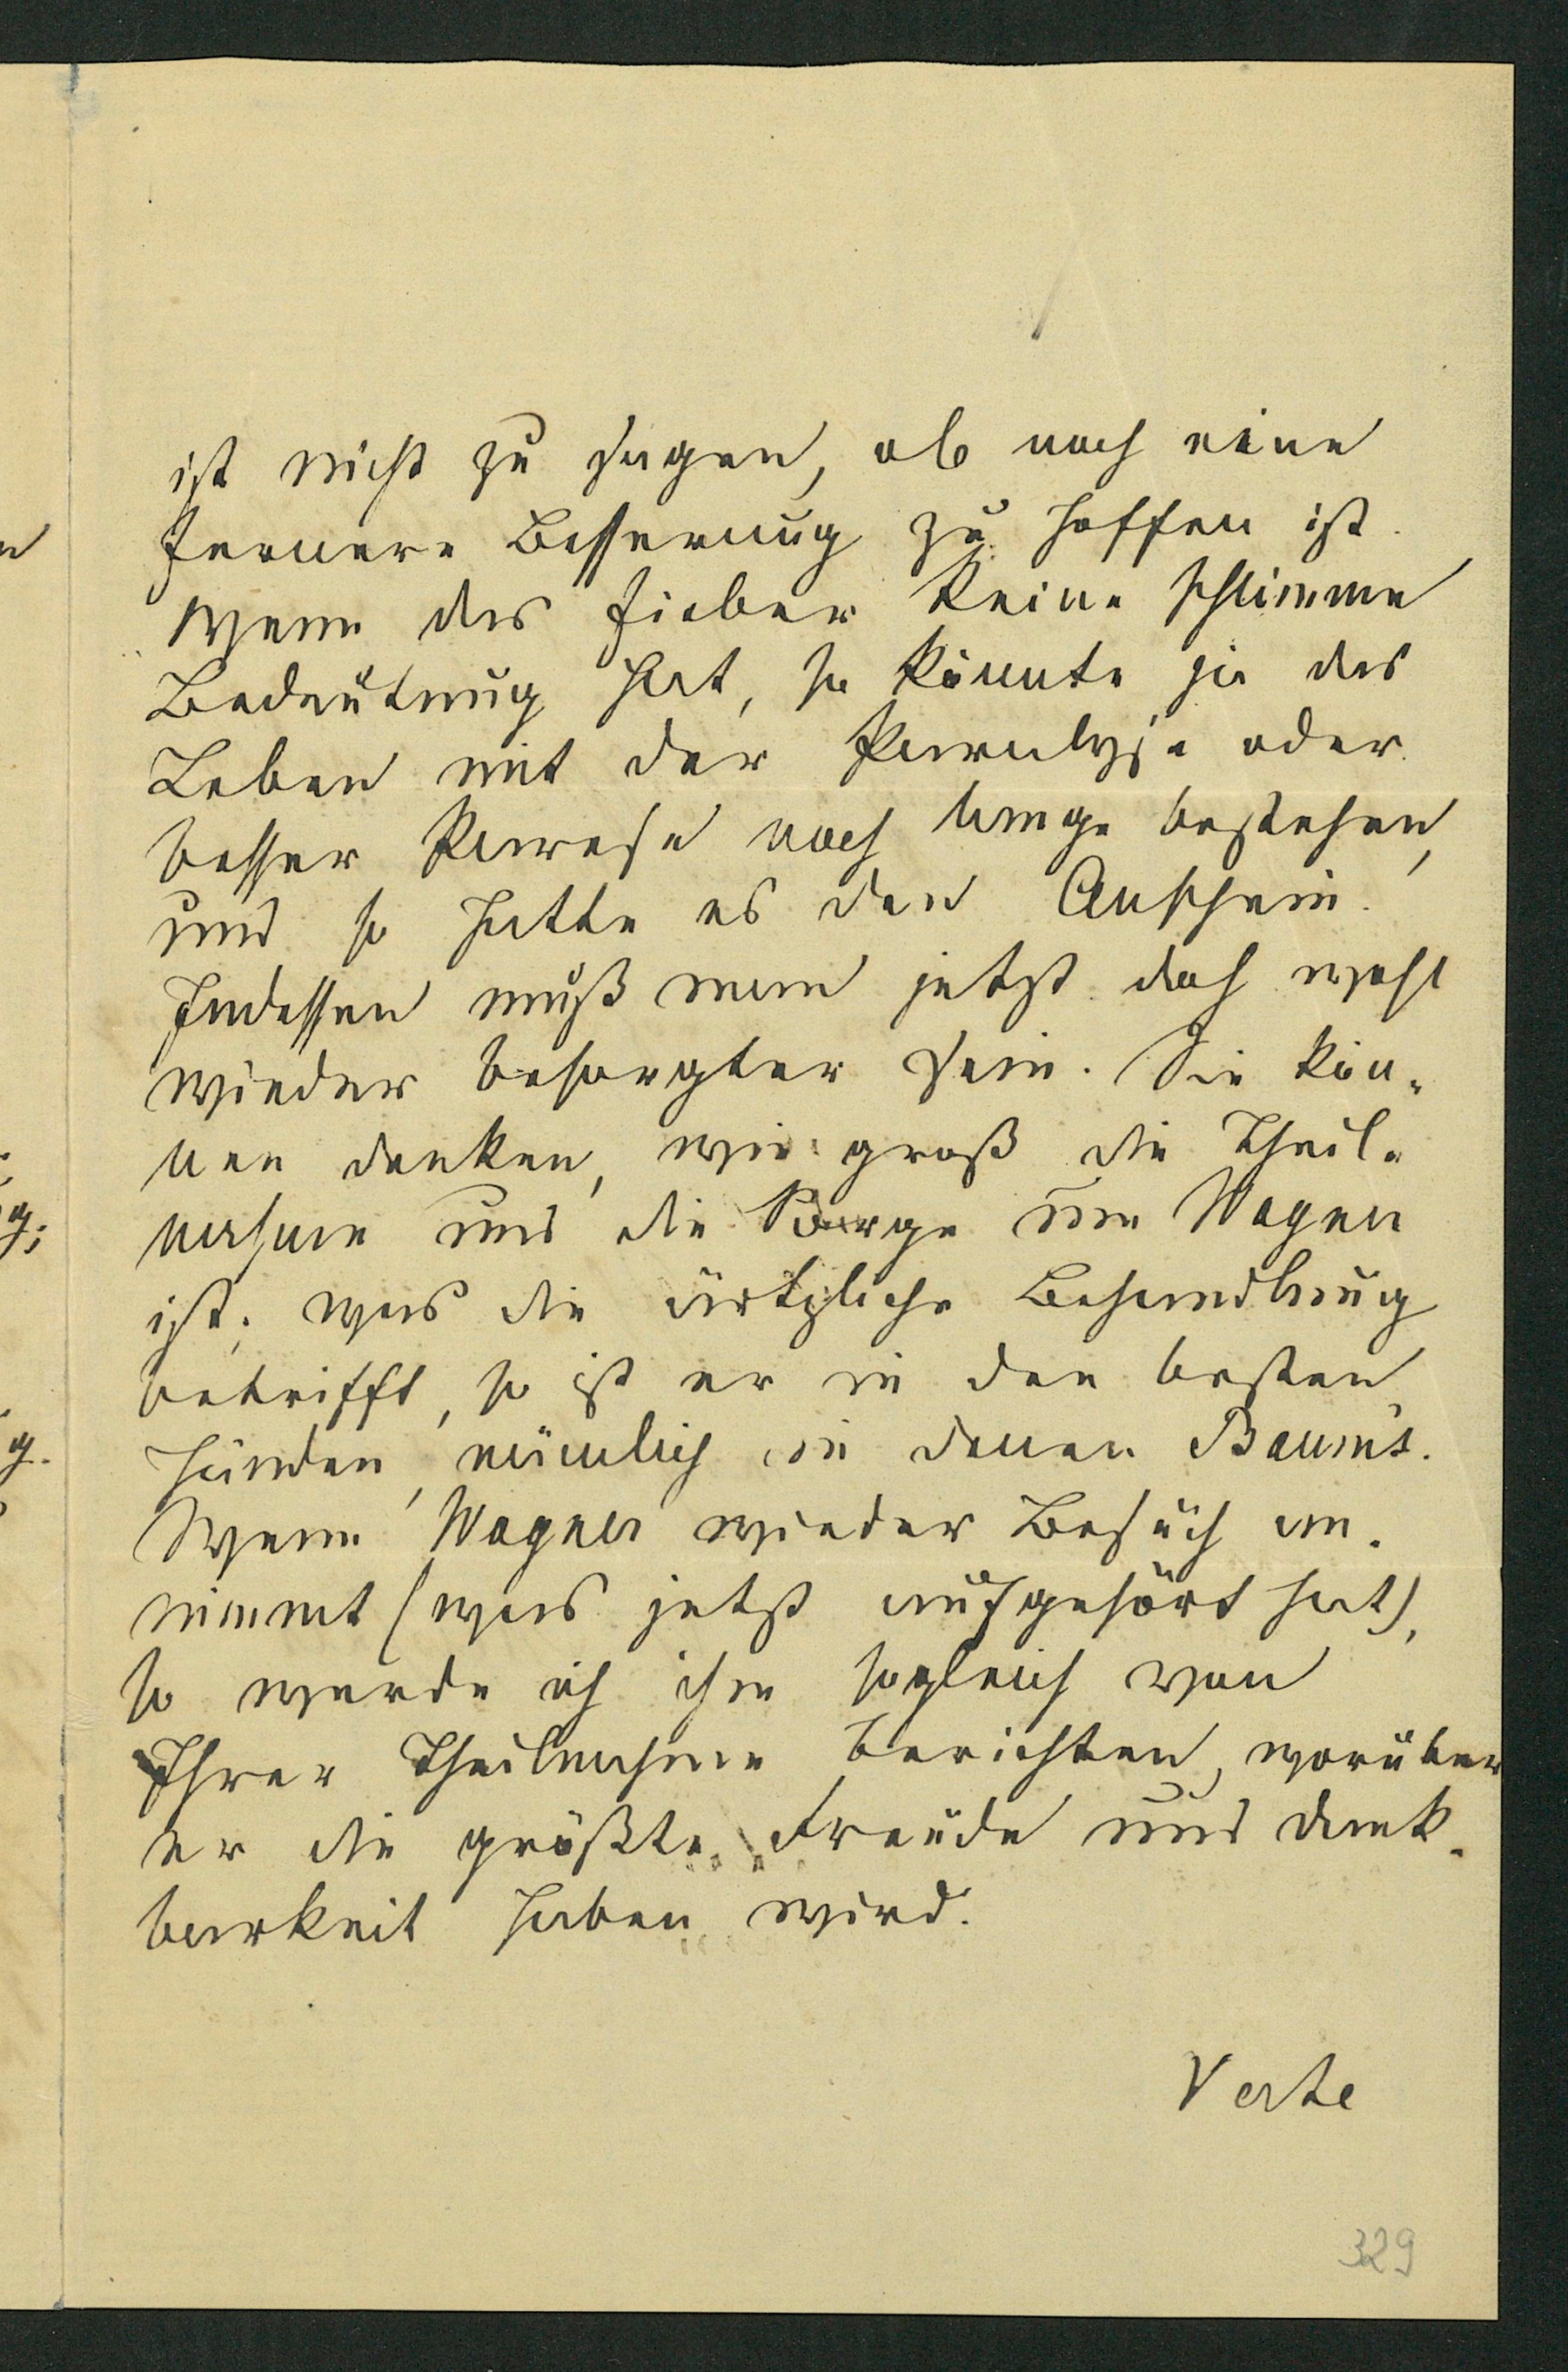 ist nicht zu sagen, ob noch eine
fernere Besserung zu hoffen ist.
Wenn das Fieber keine schlimme
Bedeutung hat, so könnte ja das
Leben mit der Paralyse oder
besser Parese noch lange bestehen,
und so hatte es den Anschein.
Indessen muß man jetzt doch wohl
wieder besorgter sein. Sie kön-
nen denken, wie groß die Theil-
nahme und die Sorge um Wagner
ist; was die ärtzliche Behandlung
betrifft, so ist er in den besten
Händen, nämlich in denen Baum's.
Wenn Wagner wieder Besuch an-
nimmt (was jetzt aufgehört hat),
so werde ich ihm sogleich von
Ihrer Theilnahme berichten, worüber
er die größte Freude und Dank-
barkeit haben wird.
Verte
329
n
g;
g.